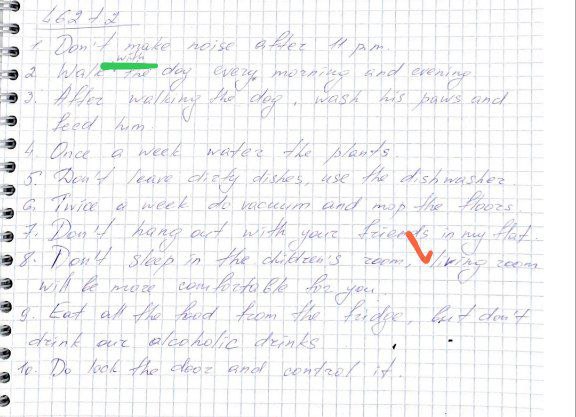 462 + 2
1. Don't make noise after 11 p.m.
with
2. Walk the dog every morning and evening
3. After walking the dog, wash his paws and
feed him.
4. Once a week water the plants.
5. Don't leave dirty dishes, use the dishwasher.
6. Twice a week do vacuum and mop the floors.
7. Don't hang out with your friends in my flat.
8. Don't sleep in the children's room, living room
will be more comfortable for you.
9. Eat all the food from the fridge, but don't
drink our alcoholic drinks
10. Do lock the door and control it.